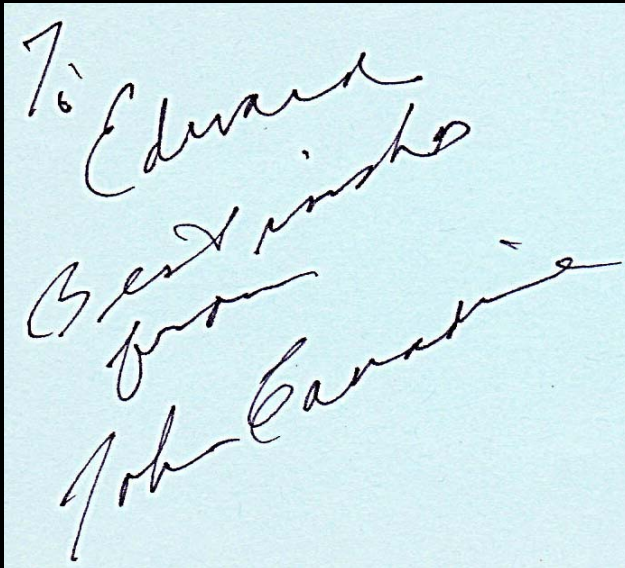 To Edward
Best wishes
from
John Carradine